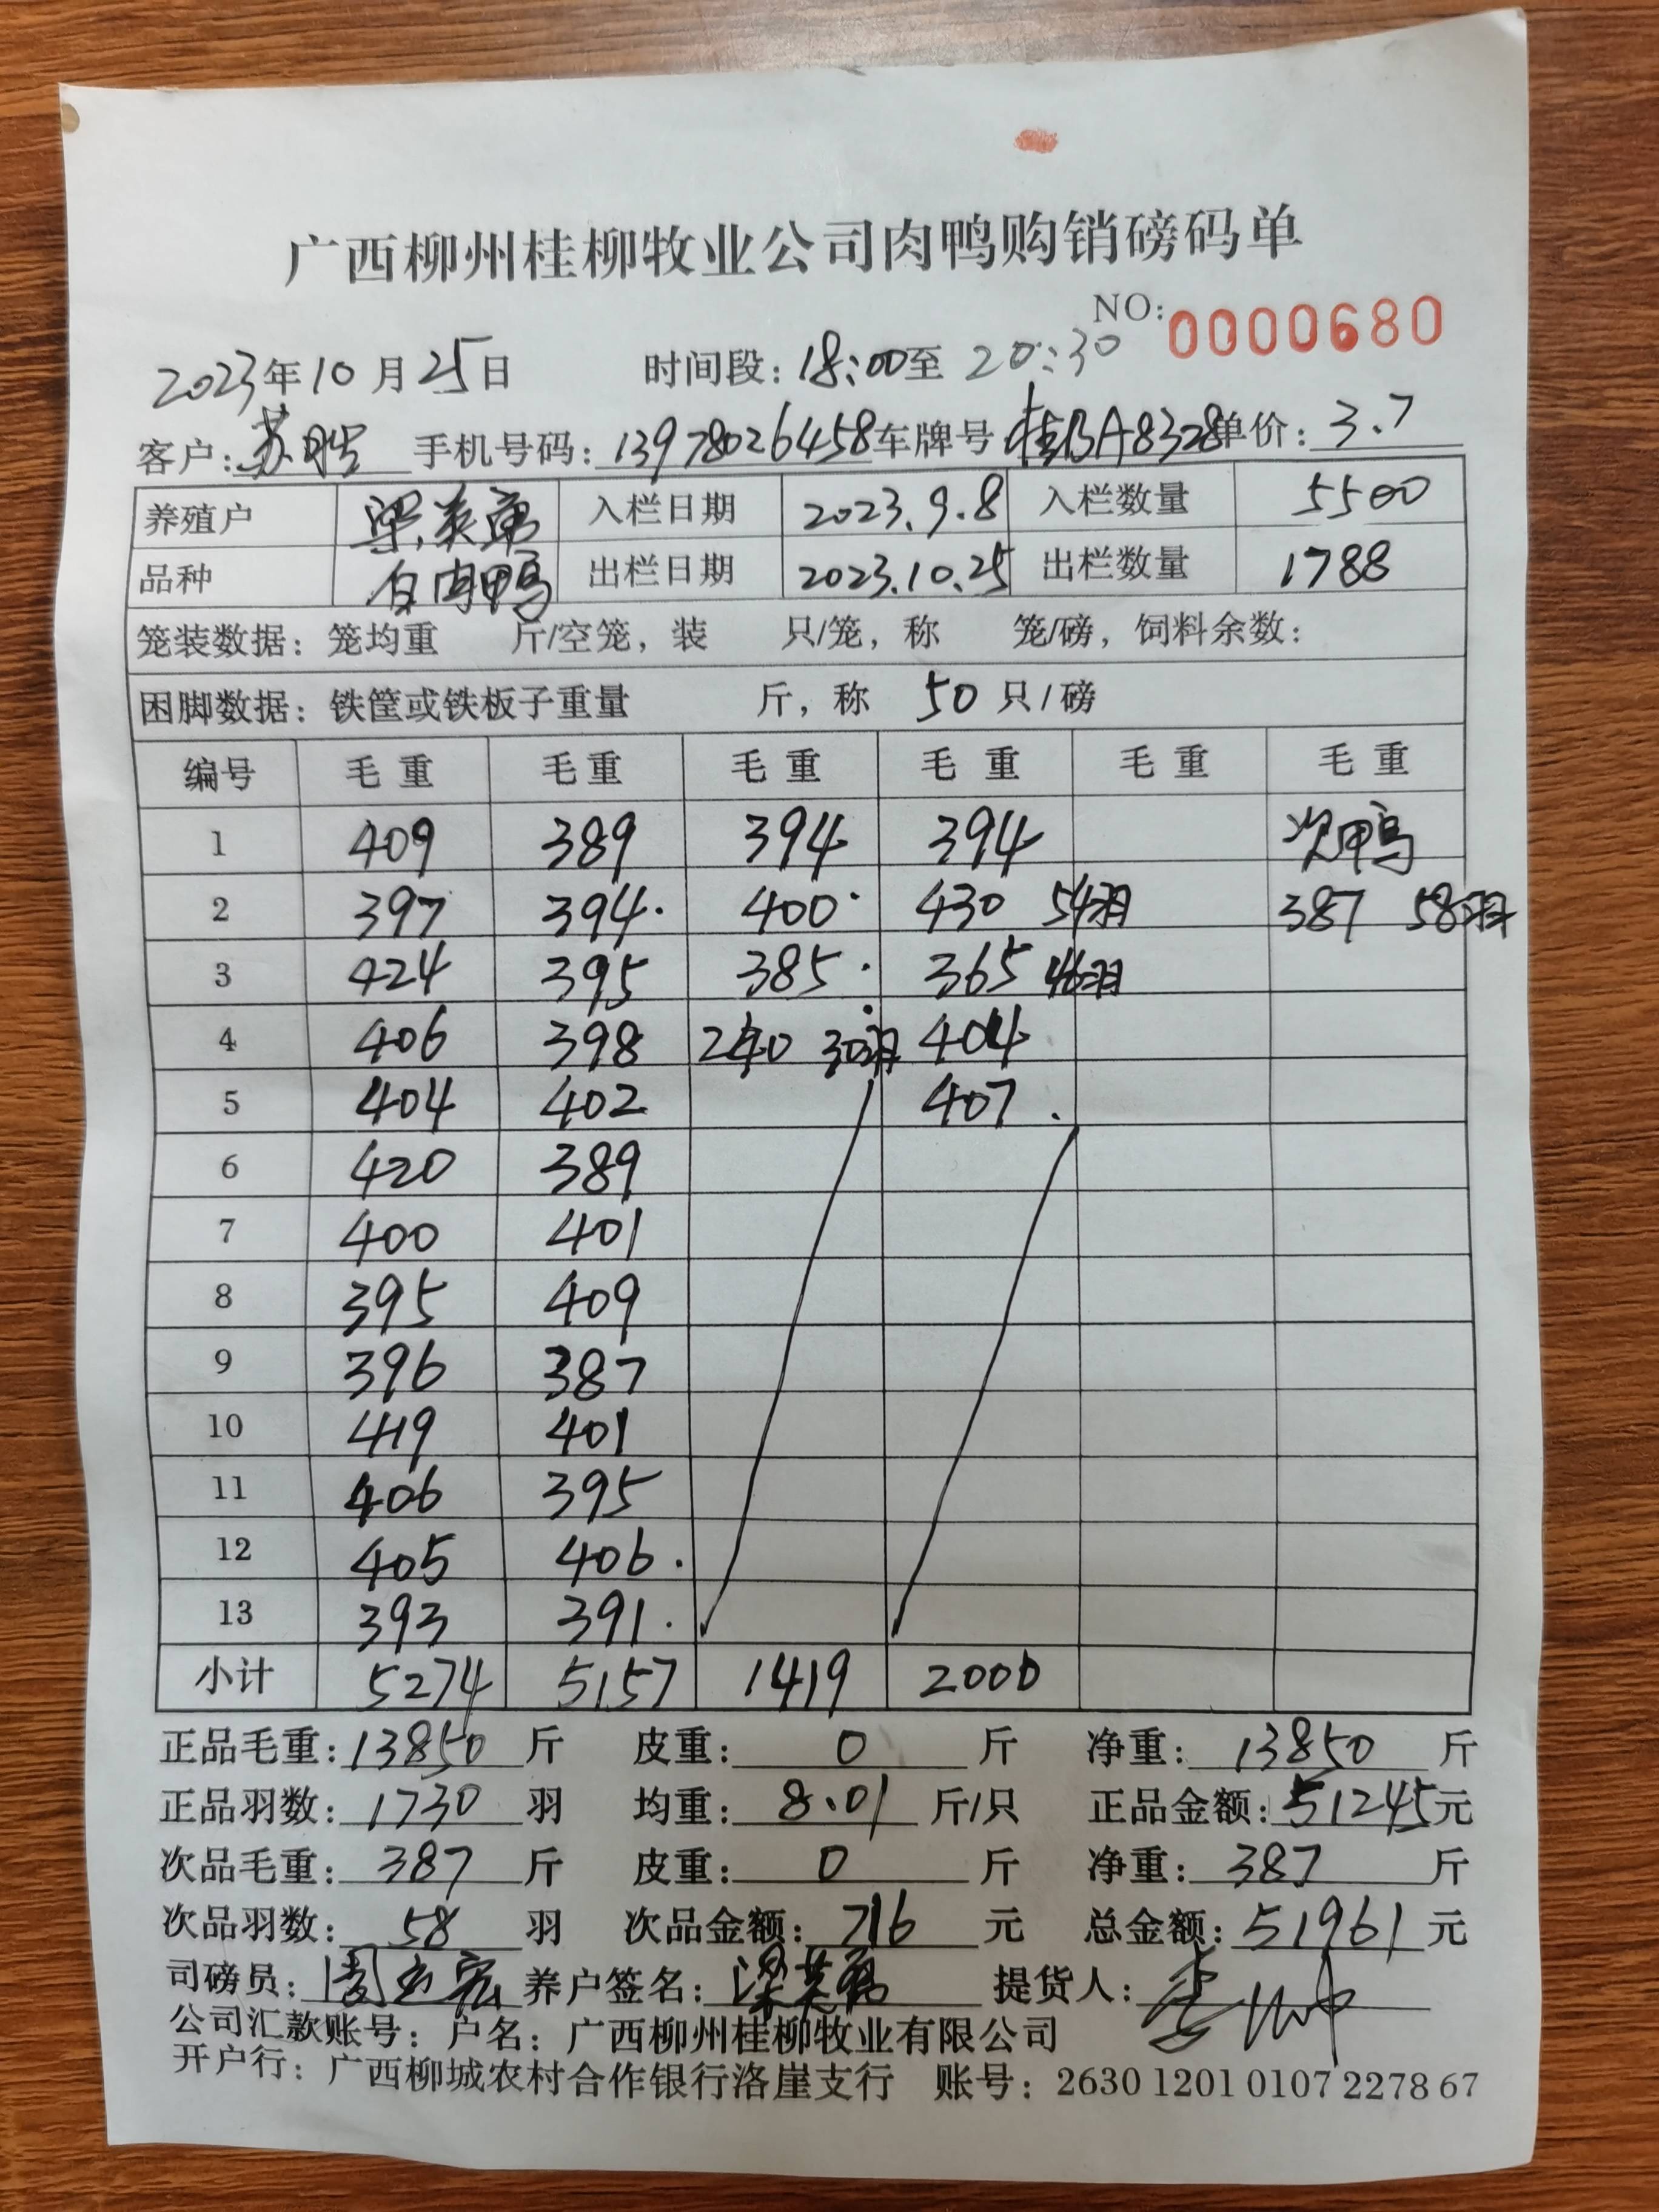 广西柳州桂柳牧业公司肉鸭购销磅码单
NO: 0000680
2023年10月25日 时间段: 18:00至 20:30
客户: 苏胜 手机号码: 13978026458 车牌号 桂BA8328 单价: 3.7
养殖户 梁英勇 入栏日期 2023.9.8 入栏数量 5500
品种 白肉鸭 出栏日期 2023.10.25 出栏数量 1788
笼装数据: 笼均重 斤/空笼, 装 只/笼, 称 笼/磅, 饲料余数:
困脚数据: 铁筐或铁板子重量 斤, 称 50 只/磅
编号 毛重 毛重 毛重 毛重 毛重 毛重
1 409 389 394 394 次鸭
2 397 394. 400. 430 54羽 387 58羽
3 424 395 385. 365 46羽
4 406 398 240 30羽 404
5 404 402 407.
6 420 389
7 400 401
8 395 409
9 396 387
10 419 401
11 406 395
12 405 406.
13 393 391.
小计 5274 5157 1419 2000
正品毛重: 13850 斤 皮重: 0 斤 净重: 13850 斤
正品羽数: 1730 羽 均重: 8.01 斤/只 正品金额: 51245 元
次品毛重: 387 斤 皮重: 0 斤 净重: 387 斤
次品羽数: 58 羽 次品金额: 716 元 总金额: 51961 元
司磅员: 养户签名: 梁英勇 提货人:
公司汇款账号: 户名: 广西柳州桂柳牧业有限公司
开户行: 广西柳城农村合作银行洛崖支行 账号: 2630 1201 0107 2278 67